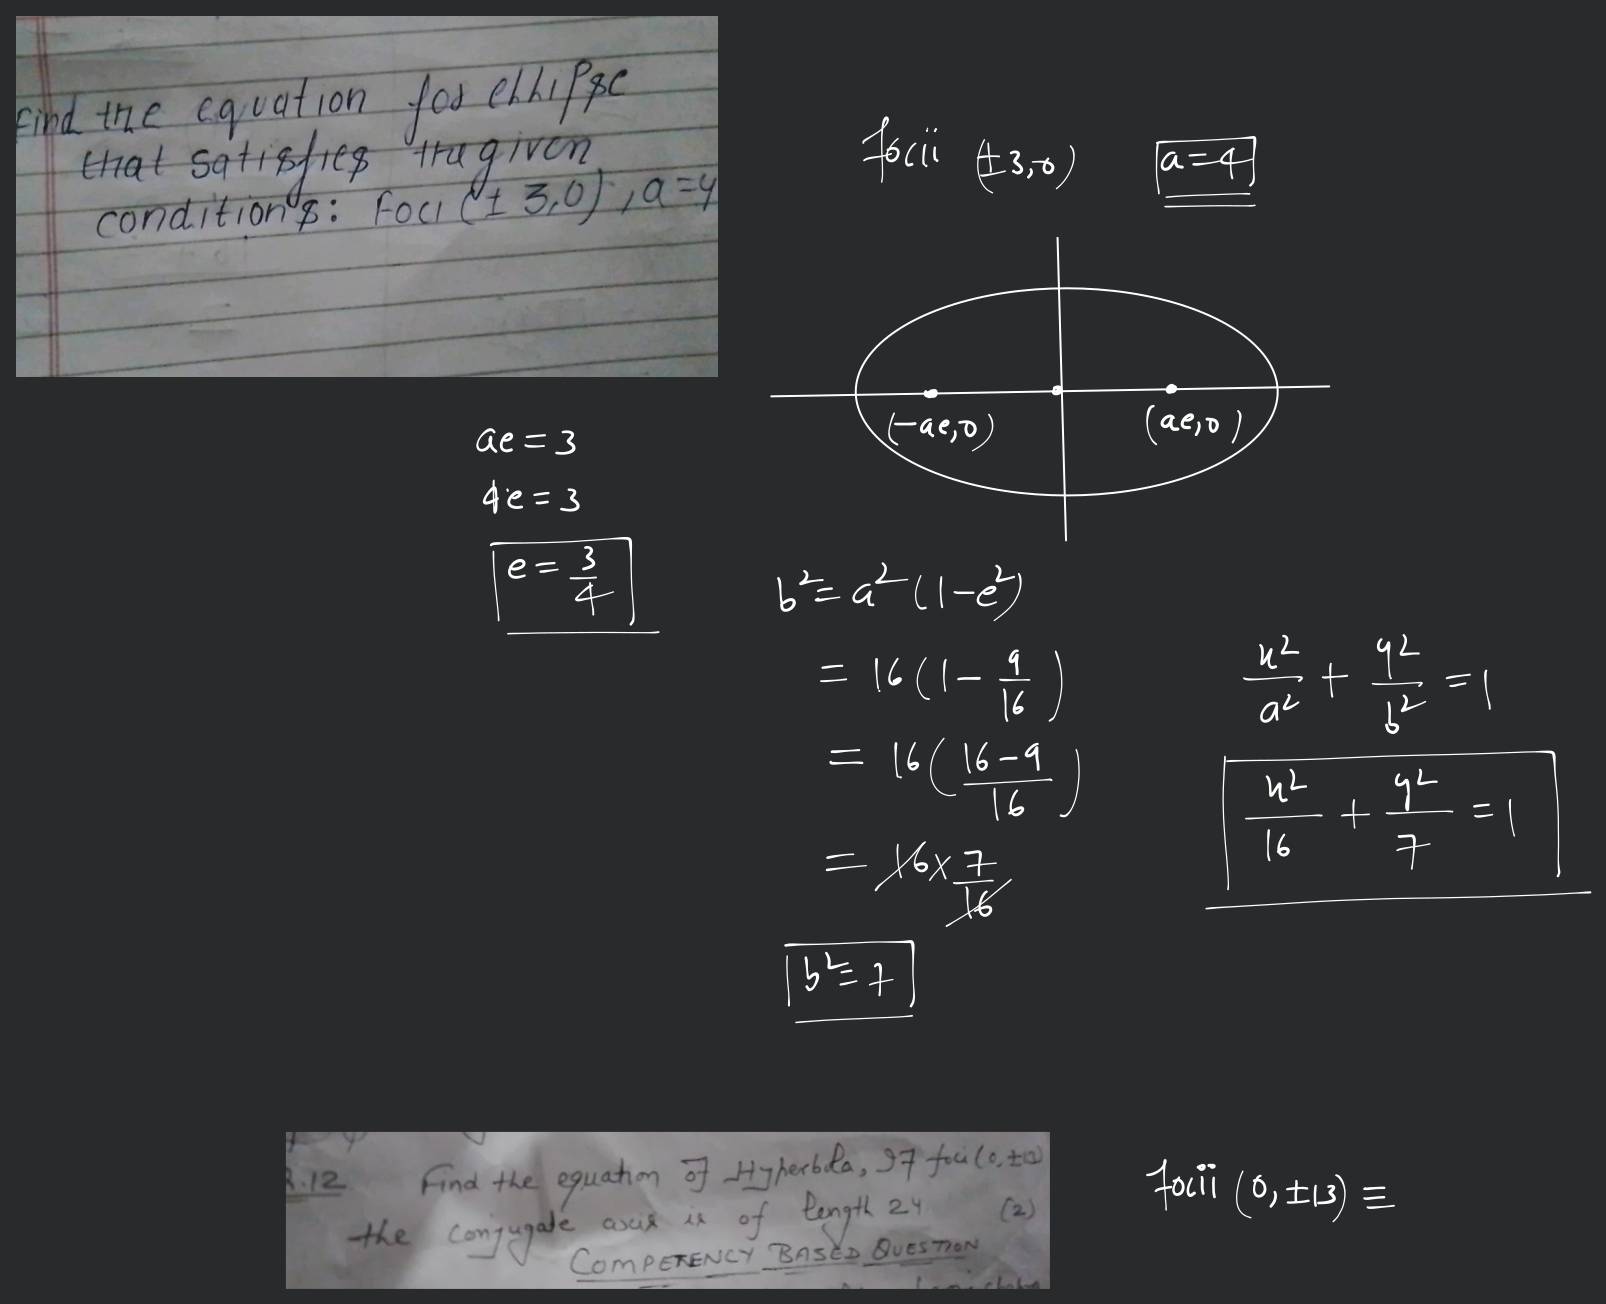 Find the equation for ellipse
that satisfies the given
condition's: Foci (± 3,0), a=4
focii (±3,0) a=4
(-ae,0) (ae,0)
ae = 3
4e = 3
e = 3/4
b² = a² (1-e²)
= 16 (1 - 9/16)
= 16 ( (16-9)/16 )
= 16 x 7/16
b² = 7
x²/a² + y²/b² = 1
x²/16 + y²/7 = 1
.12 Find the equation of Hyperbola, If foci (0, ±13)
the conjugate axis is of length 24 (2)
COMPETENCY BASED QUESTION
focii (0, ±13) ≡